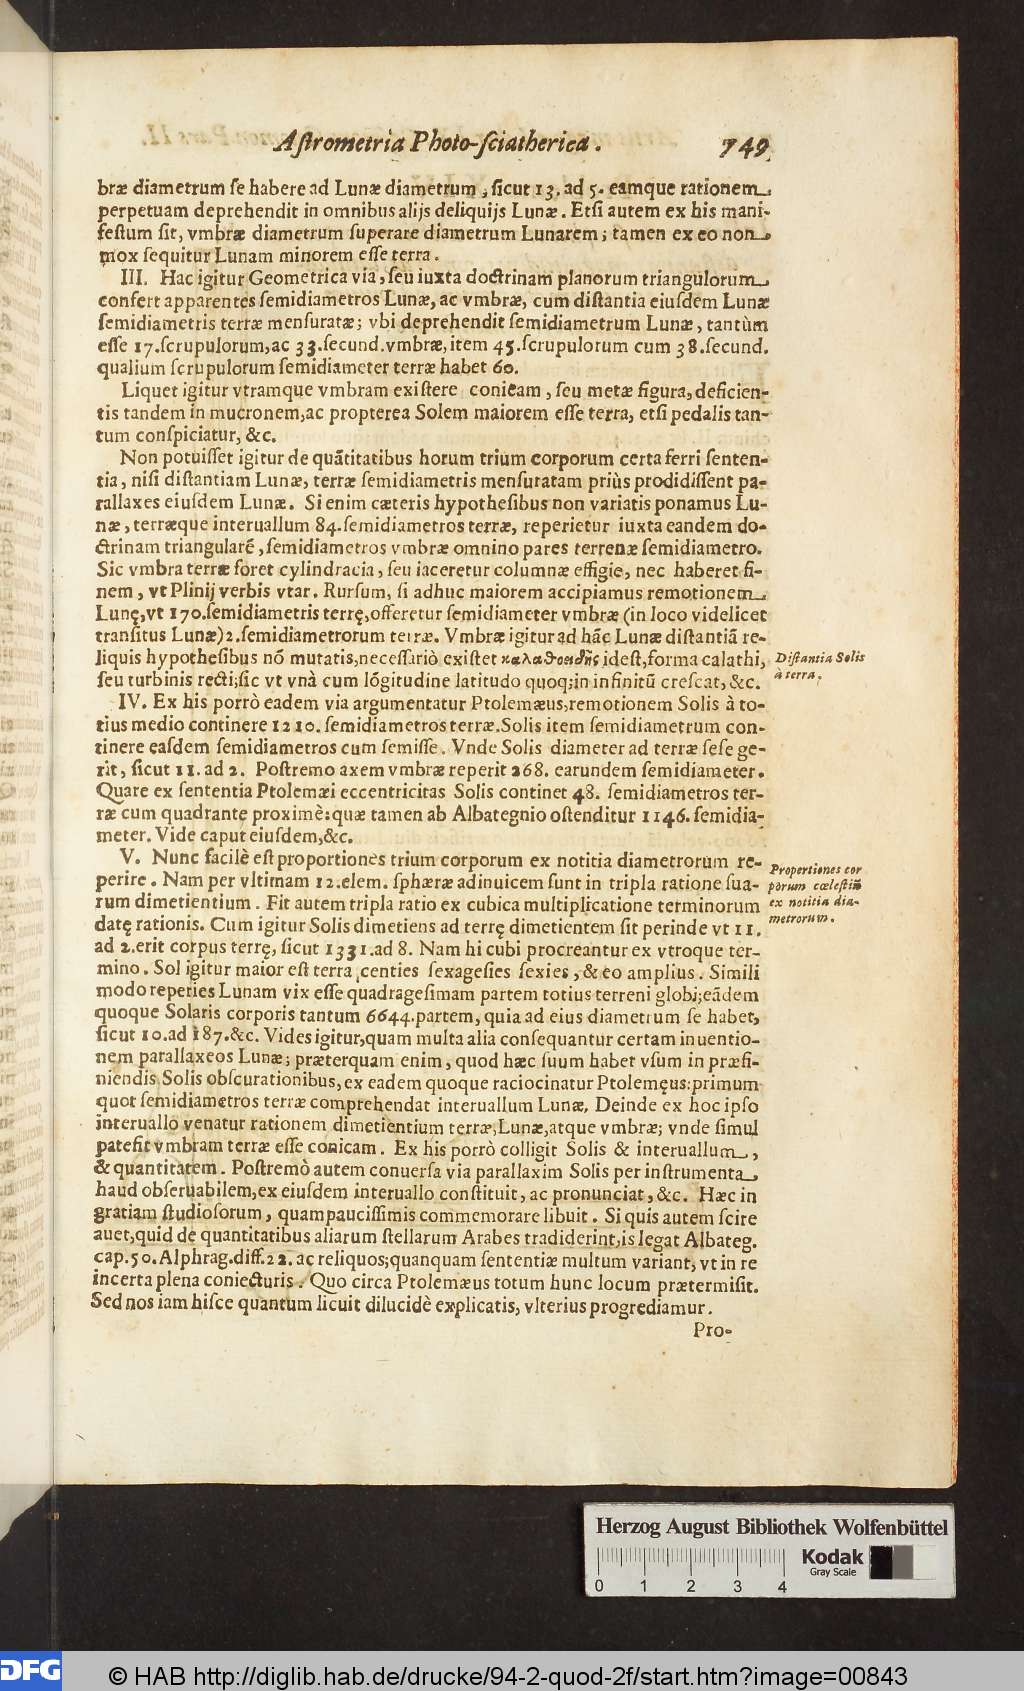 Aſtrometria Photo-ſciatherica. 749
bræ diametrum ſe habere ad Lunæ diametrum, ſicut 13. ad 5. eamque rationem
perpetuam deprehendit in omnibus alijs deliquijs Lunæ. Etſi autem ex his mani-
feſtum ſit, vmbræ diametrum ſuperare diametrum Lunarem; tamen ex eo non
mox ſequitur Lunam minorem eſſe terra.
III. Hac igitur Geometrica via, ſeu iuxta doctrinam planorum triangulorum
confert apparentes ſemidiametros Lunæ, ac vmbræ, cum diſtantia eiuſdem Lunæ
ſemidiametris terræ menſuratæ; vbi deprehendit ſemidiametrum Lunæ, tantùm
eſſe 17. ſcrupulorum, ac 33. ſecund. vmbræ, item 45. ſcrupulorum cum 38. ſecund.
qualium ſcrupulorum ſemidiameter terræ habet 60.
Liquet igitur vtramque vmbram exiſtere conicam, ſeu metæ figura, deficien-
tis tandem in mucronem, ac propterea Solem maiorem eſſe terra, etſi pedalis tan-
tum conſpiciatur, &c.
Non potuiſſet igitur de quãtitatibus horum trium corporum certa ferri ſenten-
tia, niſi diſtantiam Lunæ, terræ ſemidiametris menſuratam priùs prodidiſſent pa-
rallaxes eiuſdem Lunæ. Si enim cæteris hypotheſibus non variatis ponamus Lu-
næ, terræque interuallum 84. ſemidiametros terræ, reperietur iuxta eandem do-
ctrinam triangularẽ, ſemidiametros vmbræ omnino pares terrenæ ſemidiametro.
Sic vmbra terræ foret cylindracia, ſeu iaceretur columnæ effigie, nec haberet fi-
nem, vt Plinij verbis vtar. Rurſum, ſi adhuc maiorem accipiamus remotionem
Lunę, vt 170. ſemidiametris terrę, offeretur ſemidiameter vmbræ (in loco videlicet
tranſitus Lunæ) 2. ſemidiametrorum terræ. Vmbræ igitur ad hãc Lunæ diſtantiã re-
liquis hypotheſibus nõ mutatis, neceſſariò exiſtet καλαθοειδὴς ideſt, forma calathi,
ſeu turbinis recti; ſic vt vnà cum lõgitudine latitudo quoq; in infinitũ creſcat, &c.
Diſtantia Solis
à terra.
IV. Ex his porrò eadem via argumentatur Ptolemæus; remotionem Solis à to-
tius medio continere 1210. ſemidiametros terræ. Solis item ſemidiametrum con-
tinere eaſdem ſemidiametros cum ſemiſſe. Vnde Solis diameter ad terræ ſeſe ge-
rit, ſicut 11. ad 2. Poſtremo axem vmbræ reperit 268. earundem ſemidiameter.
Quare ex ſententia Ptolemæi eccentricitas Solis continet 48. ſemidiametros ter-
ræ cum quadrante proximè: quæ tamen ab Albategnio oſtenditur 1146. ſemidia-
meter. Vide caput eiuſdem, &c.
V. Nunc facilè eſt proportiones trium corporum ex notitia diametrorum re-
perire. Nam per vltimam 12. elem. ſphæræ adinuicem ſunt in tripla ratione ſua-
rum dimetientium. Fit autem tripla ratio ex cubica multiplicatione terminorum
datę rationis. Cum igitur Solis dimetiens ad terrę dimetientem ſit perinde vt 11.
Proportiones cor
porum cœleſtiũ
ex notitia dia-
metrorum.
ad 2. erit corpus terrę, ſicut 1331. ad 8. Nam hi cubi procreantur ex vtroque ter-
mino. Sol igitur maior eſt terra centies ſexageſies ſexies, & eo amplius. Simili
modo reperies Lunam vix eſſe quadrageſimam partem totius terreni globi; eãdem
quoque Solaris corporis tantum 6644. partem, quia ad eius diametrum ſe habet,
ſicut 10. ad 187. &c. Vides igitur, quam multa alia conſequantur certam inuentio-
nem parallaxeos Lunæ; præterquam enim, quod hæc ſuum habet vſum in præfi-
niendis Solis obſcurationibus, ex eadem quoque raciocinatur Ptolemęus: primum
quot ſemidiametros terræ comprehendat interuallum Lunæ, Deinde ex hoc ipſo
interuallo venatur rationem dimetientium terræ, Lunæ, atque vmbræ; vnde ſimul
patefit vmbram terræ eſſe conicam. Ex his porrò colligit Solis & interuallum,
& quantitatem. Poſtremò autem conuerſa via parallaxim Solis per inſtrumenta
haud obſeruabilem, ex eiuſdem interuallo conſtituit, ac pronunciat, &c. Hæc in
gratiam ſtudioſorum, quam pauciſſimis commemorare libuit. Si quis autem ſcire
auet, quid de quantitatibus aliarum ſtellarum Arabes tradiderint, is legat Albateg.
cap. 50. Alphrag. diff. 22. ac reliquos; quanquam ſententiæ multum variant, vt in re
incerta plena coniecturis. Quo circa Ptolemæus totum hunc locum prætermiſit.
Sed nos iam hiſce quantum licuit dilucidè explicatis, vlterius progrediamur.
Pro-
Herzog August Bibliothek Wolfenbüttel
Kodak
Gray Scale
0 1 2 3 4
DFG © HAB http://diglib.hab.de/drucke/94-2-quod-2f/start.htm?image=00843